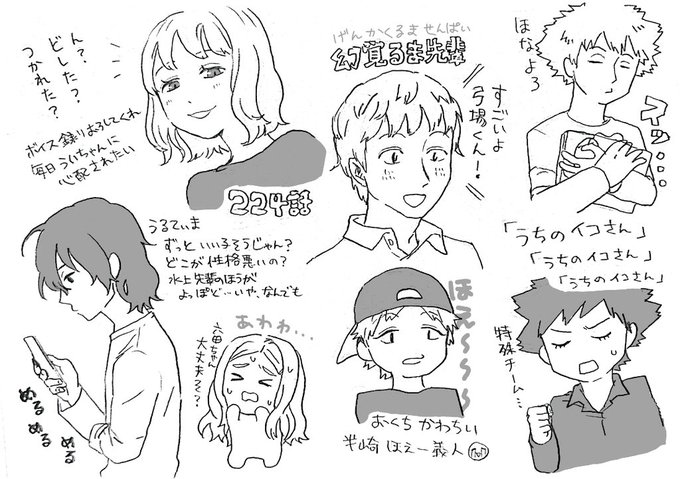 ん？
どした？
つかれた？
ボイス録りおろしてくれ
毎日ういちゃんに
心配されたい
224話
げんかくるませんぱい
幻覚るま先輩
すごいよ
弓場くん！
ほなよろ
スッ…
「うちのイコさん」
「うちのイコさん」
「うちのイコさん」
うるてぃま
ずっといい子そうじゃん？
どこが性格悪いの？
水上先輩のほうが
よっぽど…いや、なんでも
める
める
める
あわわ…
六田ちゃん
大丈夫そ？
ほえ～～～
おくち かわちい
半崎 ほえー義人
特殊チーム…